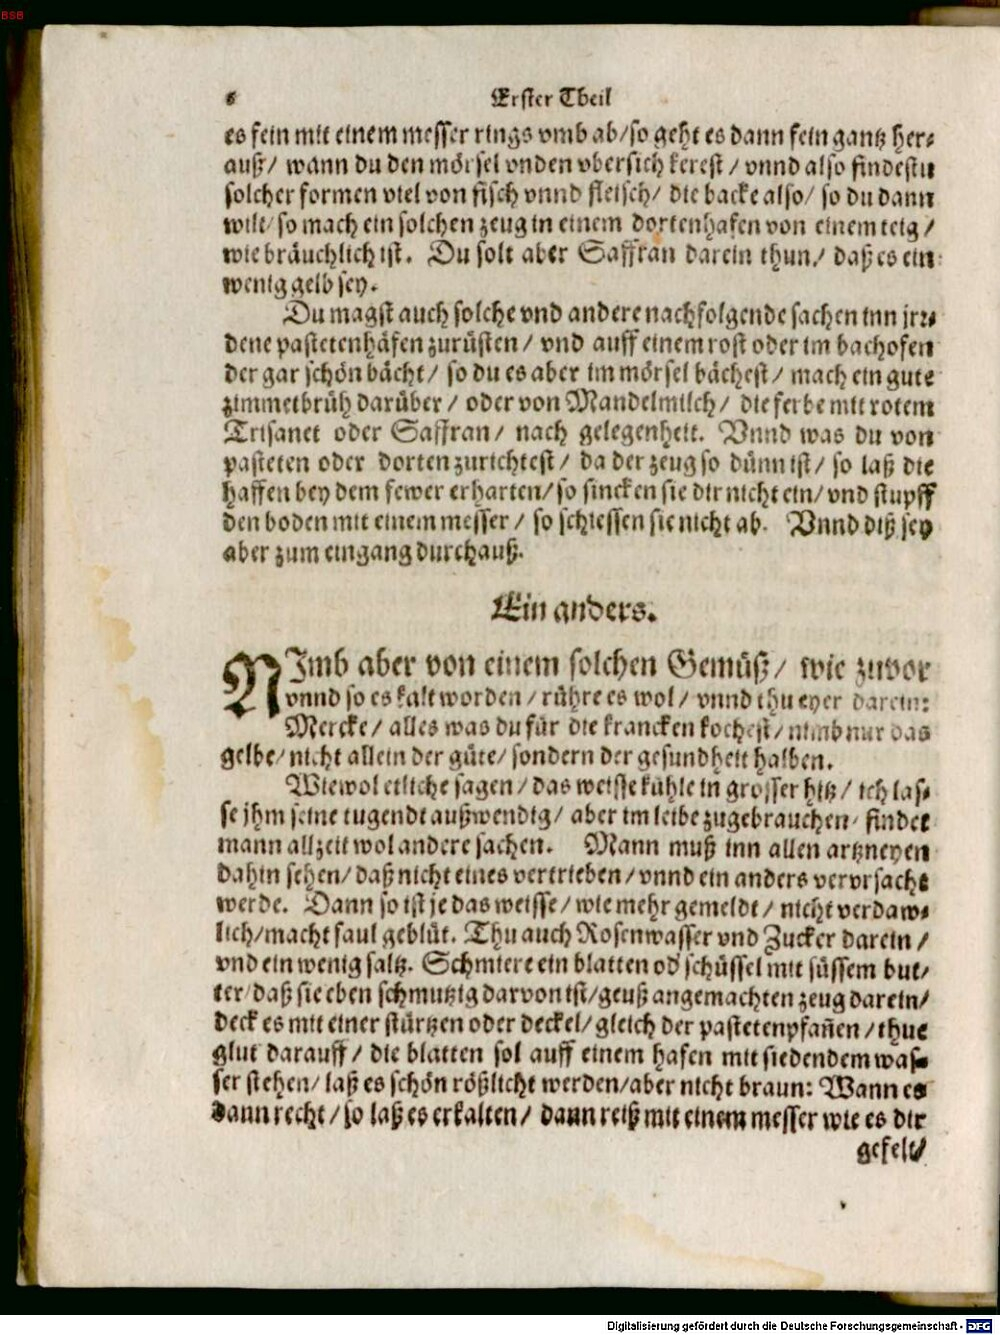 BSB
6 Erster Theil
es fein mit einem messer rings vmb ab/so geht es dann fein gantz her⸗
auß/ wann du den mörsel vnden vbersich kerest/ vnnd also findestu
solcher formen viel von fisch vnnd fleisch/ die backe also/ so du dann
wilt/ so mach ein solchen zeug in einem dortenhafen von einem teig/
wie bräuchlich ist. Du solt aber Saffran darein thun/ daß es ein
wenig gelb sey.
Du magst auch solche vnd andere nachfolgende sachen inn jrr⸗
dene pastetenhäfen zurüsten/ vnd auff einem rost oder im bachofen
der gar schön bächt/ so du es aber im mörsel bächest/ mach ein gute
zimmetbrüh darüber/ oder von Mandelmilch/ die ferbe mit rotem
Trisanet oder Saffran/ nach gelegenheit. Vnnd was du von
pasteten oder dorten zurichtest/ da der zeug so dünn ist/ so laß die
haffen bey dem fewer erharten/ so sincken sie dir nicht ein/ vnd stupff
den boden mit einem messer/ so schiessen sie nicht ab. Vnnd diß sey
aber zum eingang durchauß.
Ein anders.
NImb aber von einem solchen Gemüß/ wie zuvor
vnnd so es kalt worden/ rühre es wol/ vnnd thu eyer darein:
Mercke/ alles was du für die krancken kochest/ nimb nur das
gelbe/ nicht allein der güte/ sondern der gesundheit halben.
Wiewol etliche sagen/ das weisse kühle in grosser hitz/ ich las⸗
se jhm seine tugendt außwendig/ aber im leibe zugebrauchen/ findet
mann allzeit wol andere sachen. Mann muß inn allen artzneyen
dahin sehen/ daß nicht eines vertrieben/ vnnd ein anders vervrsacht
werde. Dann so ist je das weisse/ wie mehr gemeldt/ nicht verdaw⸗
lich/ macht faul geblüt. Thu auch Rosenwasser vnd Zucker darein/
vnd ein wenig saltz. Schmiere ein blatten od' schüssel mit süssem but⸗
ter/ daß sie eben schmutzig darvon ist/ geuß angemachten zeug darein/
deck es mit einer stürtzen oder deckel/ gleich der pastetenpfañen/ thue
glut darauff/ die blatten sol auff einem hafen mit siedendem was⸗
ser stehen/ laß es schön rößlicht werden/ aber nicht braun: Wann es
dann recht/ so laß es erkalten/ dann reiß mit einem messer wie es dir
gefelt/
Digitalisierung gefördert durch die Deutsche Forschungsgemeinschaft - DFG